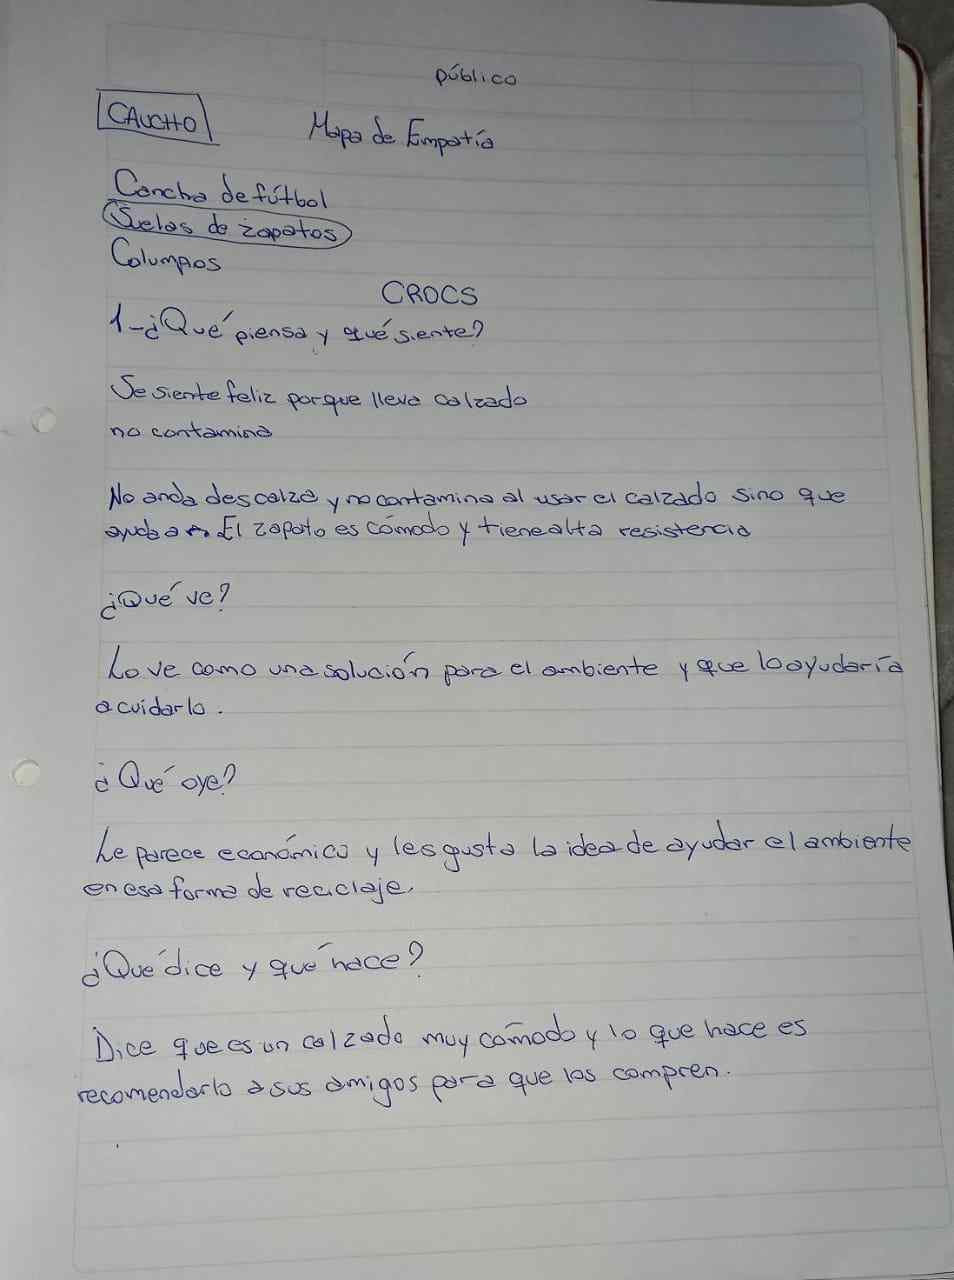 público
CAUCHO
Mapa de Empatía
Cancha de fútbol
Suelas de zapatos
Columpios
CROCS
1-¿Qué piensa y qué siente?
Se siente feliz porque lleva calzado
no contamina
No anda descalza y no contamina al usar el calzado sino que
ayuda El zapato es cómodo y tiene alta resistencia
¿Qué ve?
Lo ve como una solución para el ambiente y que lo ayudaría
a cuidarlo.
¿Qué oye?
Le parece económico y les gusta la idea de ayudar el ambiente
en esa forma de reciclaje.
¿Qué dice y qué hace?
Dice que es un calzado muy cómodo y lo que hace es
recomendarlo a sus amigos para que los compren.